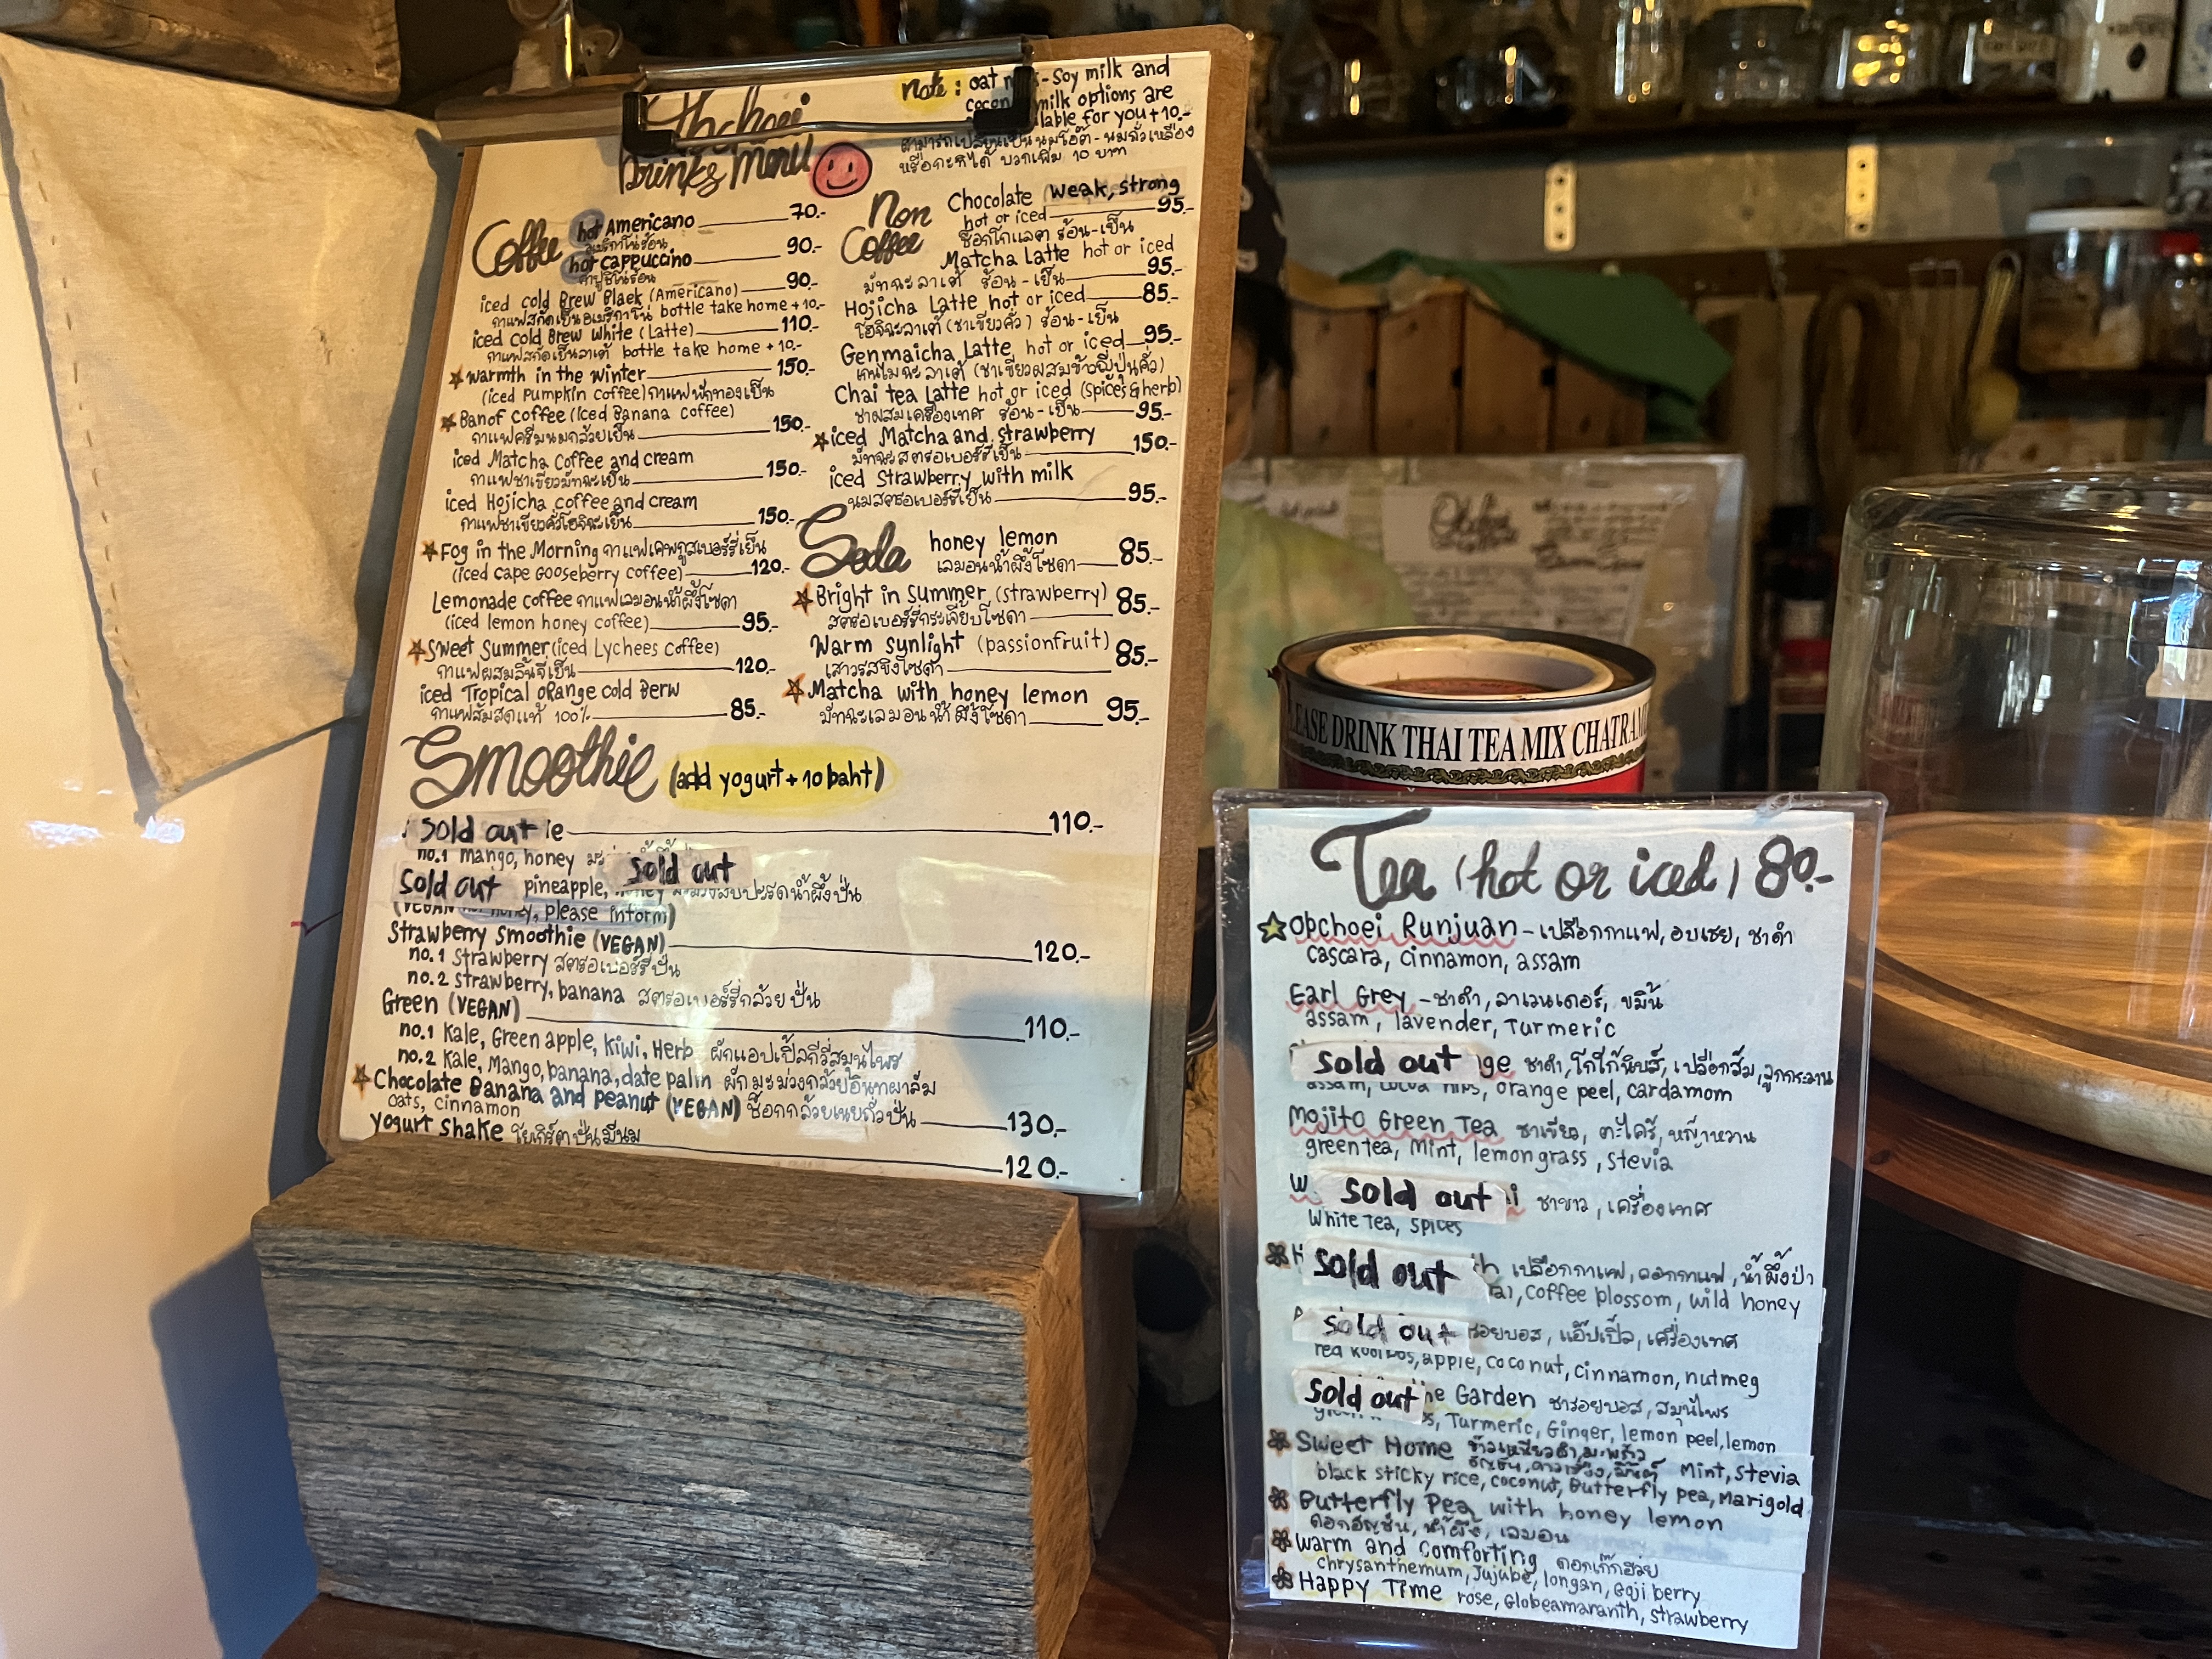 Drinks Menu
note: oat - Soy milk and
milk options are
for you +10.-
สามารถเปลี่ยนเป็นนมโอ๊ต-นมถั่วเหลือง
หรือกะทิได้ บวกเพิ่ม 10 บาท
Coffee
hot Americano 70.-
อเมริกาโน่ร้อน
hot cappuccino 90.-
คาปูชิโน่ร้อน
iced cold Brew Black (Americano) 90.-
กาแฟสกัดเย็นอเมริกาโน่ bottle take home +10.-
iced cold Brew White (Latte) 110.-
กาแฟสกัดเย็นลาเต้ bottle take home +10.-
warmth in the winter 150.-
(iced pumpkin coffee) กาแฟฟักทองเย็น
Banof coffee (iced Banana coffee)
กาแฟครีมนมกล้วยเย็น 150.-
iced Matcha coffee and cream
กาแฟชาเขียวมัทฉะเย็น 150.-
iced Hojicha coffee and cream
กาแฟชาเขียวคั่วโฮจิฉะเย็น 150.-
Fog in the Morning กาแฟเคพกูสเบอร์รี่เย็น
(iced cape Gooseberry coffee) 120.-
Lemonade coffee กาแฟเลมอนน้ำผึ้งโซดา
(iced lemon honey coffee) 95.-
Sweet Summer (iced Lychees coffee)
กาแฟผสมลิ้นจี่เย็น 120.-
iced Tropical oRange cold Berw
กาแฟส้มสดแท้ 100% 85.-
Non Coffee
Chocolate weak, strong
hot or iced 95.-
ช็อกโกแลต ร้อน-เย็น
Matcha Latte hot or iced
มัทฉะลาเต้ ร้อน-เย็น 95.-
Hojicha Latte hot or iced 85.-
โฮจิฉะลาเต้ (ชาเขียวคั่ว) ร้อน-เย็น
Genmaicha Latte hot or iced 95.-
เกนไมฉะลาเต้ (ชาเขียวผสมข้าวญี่ปุ่นคั่ว)
Chai tea latte hot or iced (spices&herb)
ชาผสมเครื่องเทศ ร้อน-เย็น 95.-
iced Matcha and strawberry 150.-
มัทฉะสตรอเบอร์รี่เย็น
iced strawberry with milk
นมสตรอเบอร์รี่เย็น 95.-
Soda
honey lemon
เลมอนน้ำผึ้งโซดา 85.-
Bright in summer (strawberry) 85.-
สตรอเบอร์รี่กระเจี๊ยบโซดา
Warm sunlight (passionfruit) 85.-
เสาวรสขิงโซดา
Matcha with honey lemon
มัทฉะเลมอนน้ำผึ้งโซดา 95.-
Smoothie (add yogurt + 10 baht)
Sold out ie 110.-
no.1 mango, honey Sold out
Sold out pineapple, มะม่วงสับปะรดน้ำผึ้งปั่น
honey, please inform)
Strawberry smoothie (VEGAN) 120.-
no.1 strawberry สตรอเบอร์รี่ปั่น
no.2 strawberry, banana สตรอเบอร์รี่กล้วยปั่น
Green (VEGAN) 110.-
no.1 Kale, Green apple, Kiwi, Herb ผักแอปเปิ้ลกีวี่สมุนไพร
no.2 Kale, Mango, banana, date palm ผักมะม่วงกล้วยอินทผาลัม
Chocolate Banana and peanut (VEGAN) ช็อกกล้วยเนยถั่วปั่น 130.-
oats, cinnamon
yogurt shake โยเกิร์ตปั่นมีนม 120.-
PLEASE DRINK THAI TEA MIX
Tea (hot or iced) 80.-
Obchoei Runjuan - เปลือกกาแฟ, อบเชย, ชาดำ
cascara, cinnamon, assam
Earl Grey - ชาดำ, ลาเวนเดอร์, ขมิ้น
assam, lavender, Turmeric
Sold out ge ชาดำ, โกโก้นิบส์, เปลือกส้ม, ลูกกระวาน
assam, cocoa nips, orange peel, cardamom
Mojito Green Tea ชาเขียว, ตะไคร้, หญ้าหวาน
green tea, mint, lemongrass, stevia
W Sold out i ชาขาว, เครื่องเทศ
White Tea, spices
Sold out เปลือกกาแฟ, ดอกกาแฟ, น้ำผึ้งป่า
coffee blossom, wild honey
Sold out รอยบอส, แอ๊ปเปิ้ล, เครื่องเทศ
red Rooibos, apple, coconut, cinnamon, nutmeg
Sold out the Garden ชารอยบอส, สมุนไพร
Turmeric, Ginger, lemon peel, lemon
Sweet Home ข้าวเหนียวดำ, มะพร้าว
อัญชัน, ดาวเรือง, มิ้นต์ Mint, Stevia
black sticky rice, coconut, Butterfly pea, Marigold
Butterfly Pea with honey lemon
ดอกอัญชัน, น้ำผึ้ง, เลมอน
warm and comforting ดอกเก๊กฮวย
chrysanthemum, Jujube, longan, Goji berry
Happy Time rose, Globeamaranth, strawberry